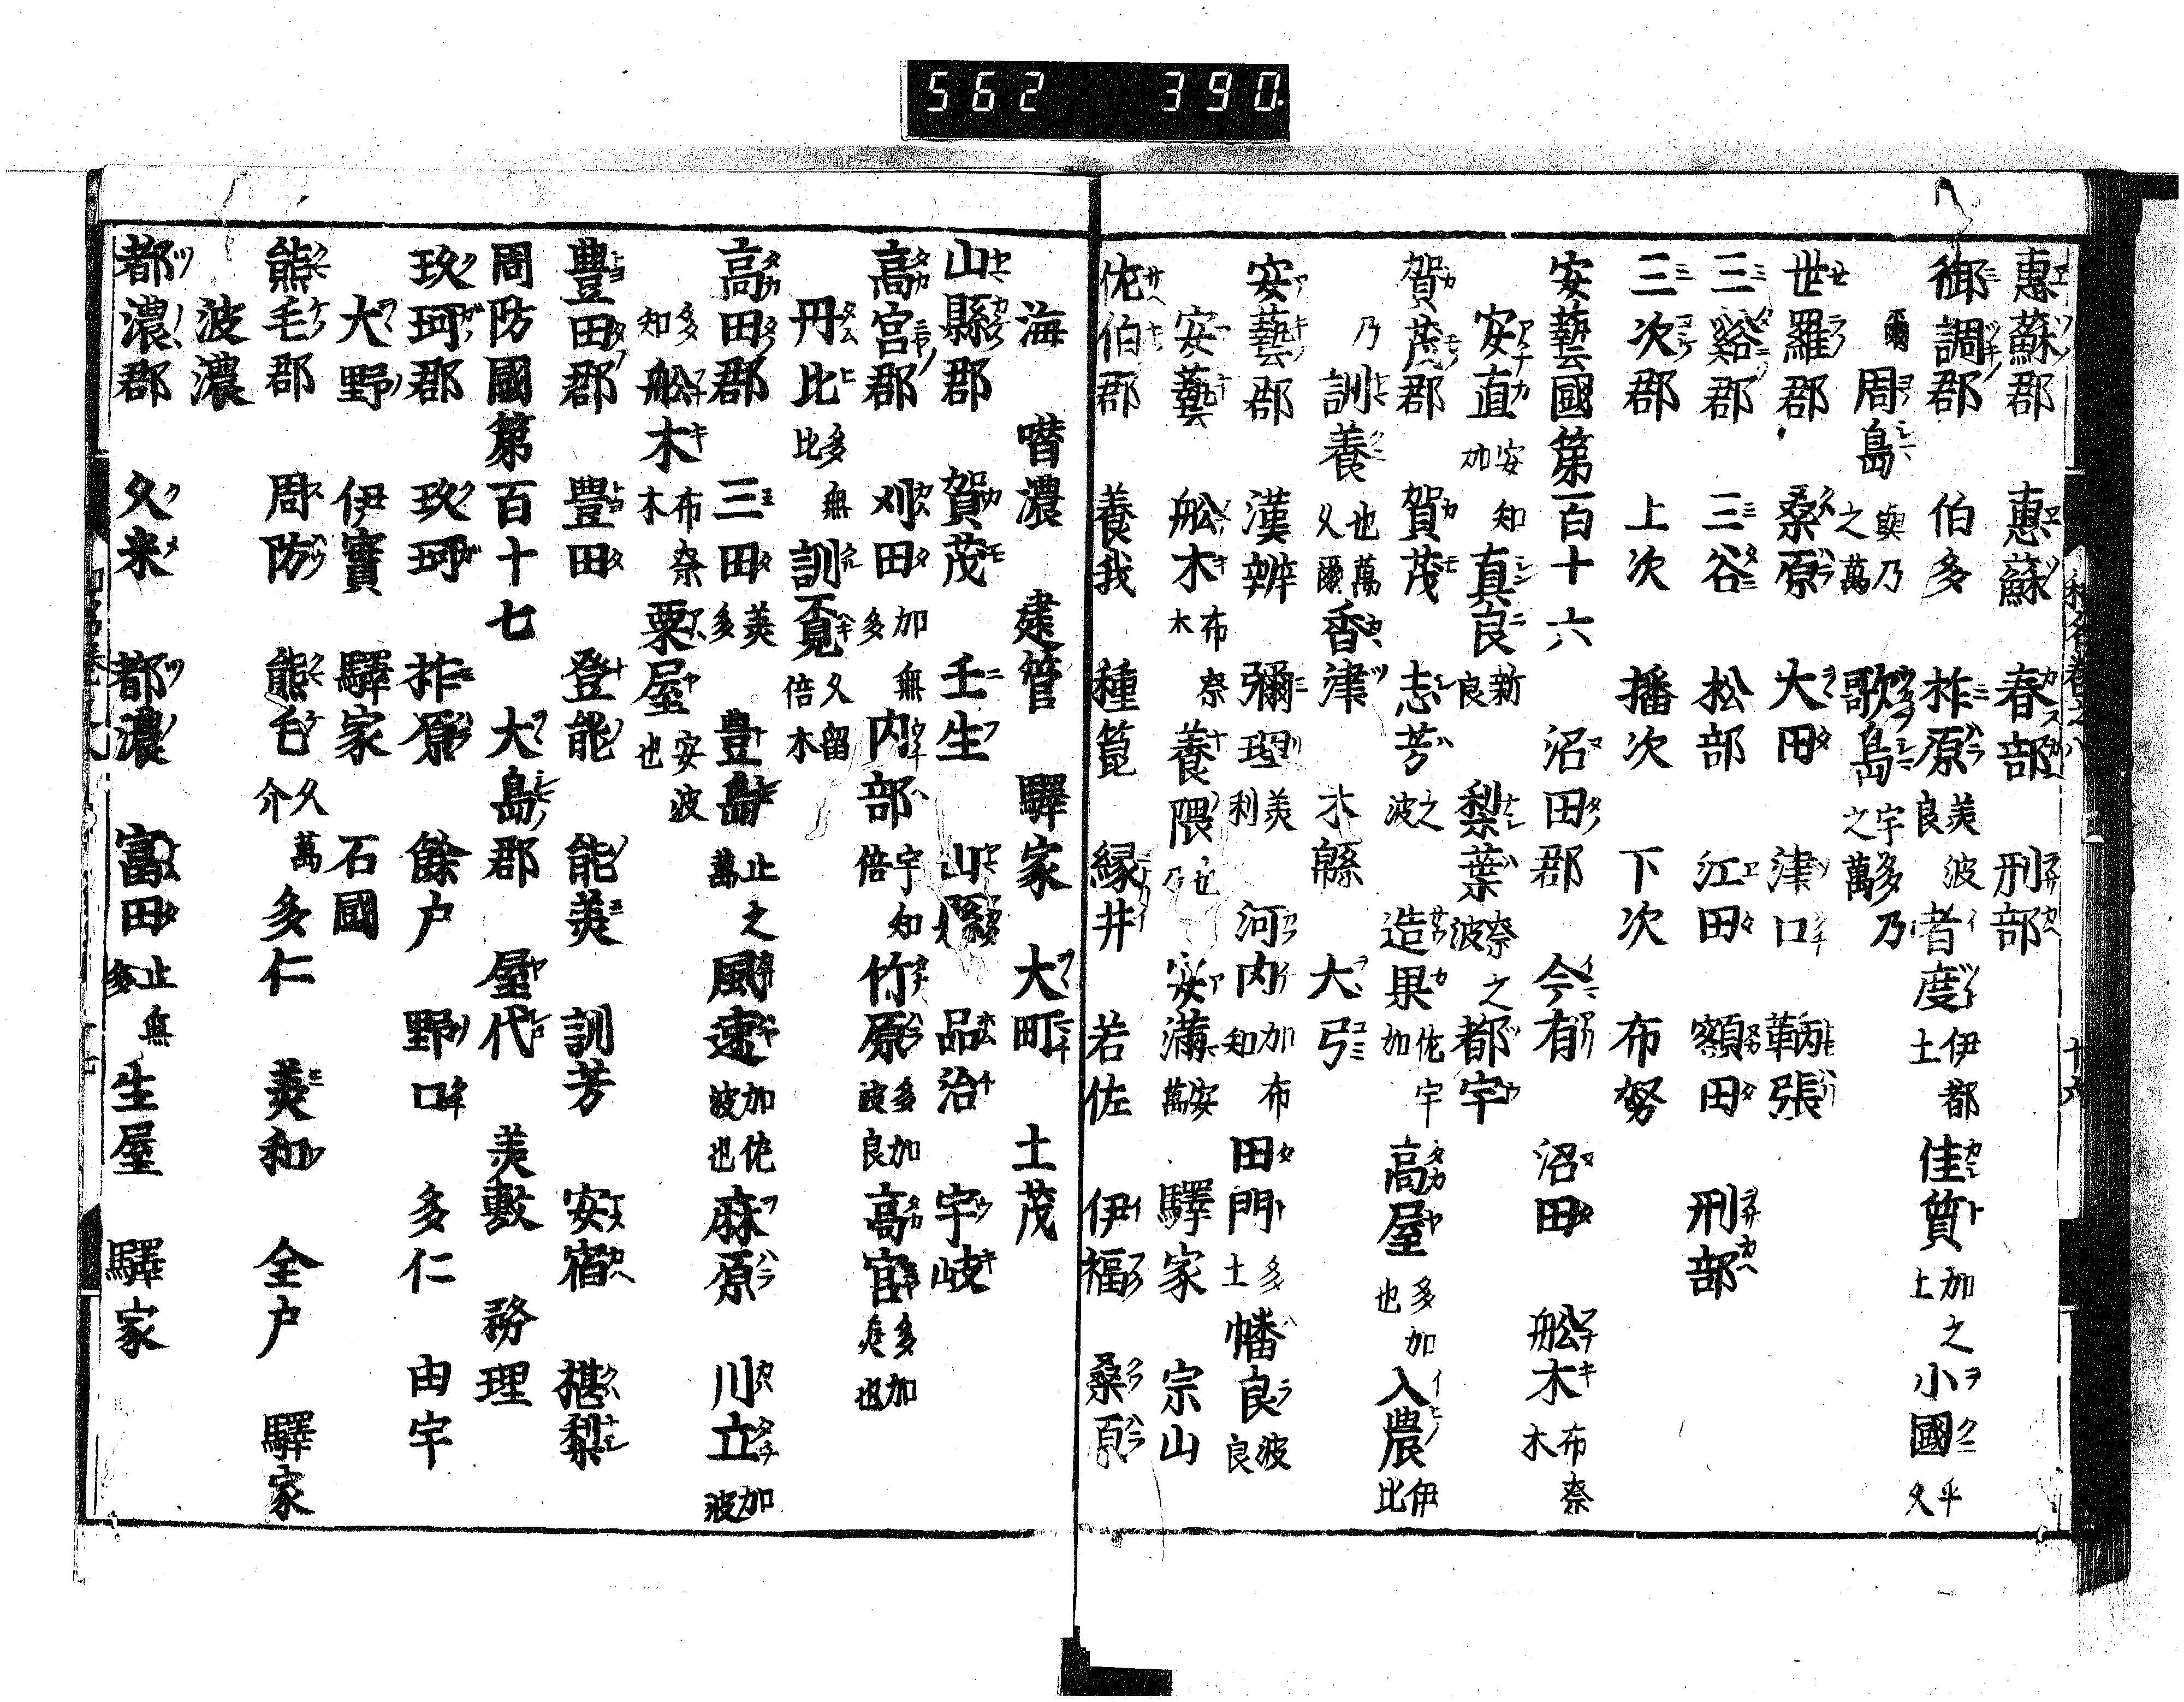 562 390.
惠蘇郡 惠蘇 春部 刑部
御調郡 伯多 柞原 美波良 者度 伊都土 佳質 加之上 小國 乎久
爾 周島 與乃之萬 歌島 宇多乃之萬
世羅郡 桑原 大田 津口 鞆張
三谿郡 三谷 松部 江田 額田 刑部
三次郡 上次 播次 下次 布努
安藝國第百十六 沼田郡 今有 沼田 舩木 布奈木
安直 安知加 真良 新良 梨葉 奈之波 都宇
賀茂郡 賀茂 志芳 之波 造果 佐宇加 高屋 多加也 入農 伊比
乃 訓養 也萬久爾 香津 木緜 大弓
安藝郡 漢辨 彌理 美利 河内 加布知 田門 多土 幡良 波良
安藝 舩木 布奈木 養隈 也乃 安滿 安萬 驛家 宗山
佐伯郡 養我 種箆 縁井 若佐 伊福 桑原
海 㗭濃 建管 驛家 大町 土茂
山縣郡 賀茂 壬生 山縣 品治 宇岐
高宮郡 刈田 加無多 内部 宇知倍 竹原 多加波良 高宮 多加美也
丹比 多無比 訓覔 久留倍木
高田郡 三田 美多 豊島 止之萬 風速 加佐波也 麻原 川立 加波
多知 舩木 布奈木 粟屋 安波也
豊田郡 豊田 登能 能美 訓芳 安宿 椹梨
周防國第百十七 大島郡 屋代 美敷 務理
玖珂郡 玖珂 柞原 餘户 野口 多仁 由宇
大野 伊寶 驛家 石國
熊毛郡 周防 熊毛 久萬介 多仁 美和 全户 驛家
波濃
都濃郡 久米 都濃 富田 止無多 生屋 驛家